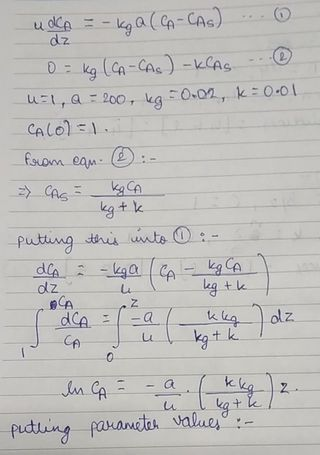 u dCA/dz = -kg a (CA - CAS) ... ①
0 = kg (CA - CAS) - kCAS ... ②
u=1, a = 200, kg = 0.02, k = 0.01
CA(0) = 1.
From eqn. ② :-
⇒ CAS = kgCA / (kg + k)
putting this into ① :-
dCA/dz = -kga/u (CA - kgCA/(kg + k))
∫₁^CA dCA/CA = ∫₀^z -a/u (k kg/(kg + k)) dz
ln CA = -a/u . (k kg/(kg + k)) z.
putting parameter values :-